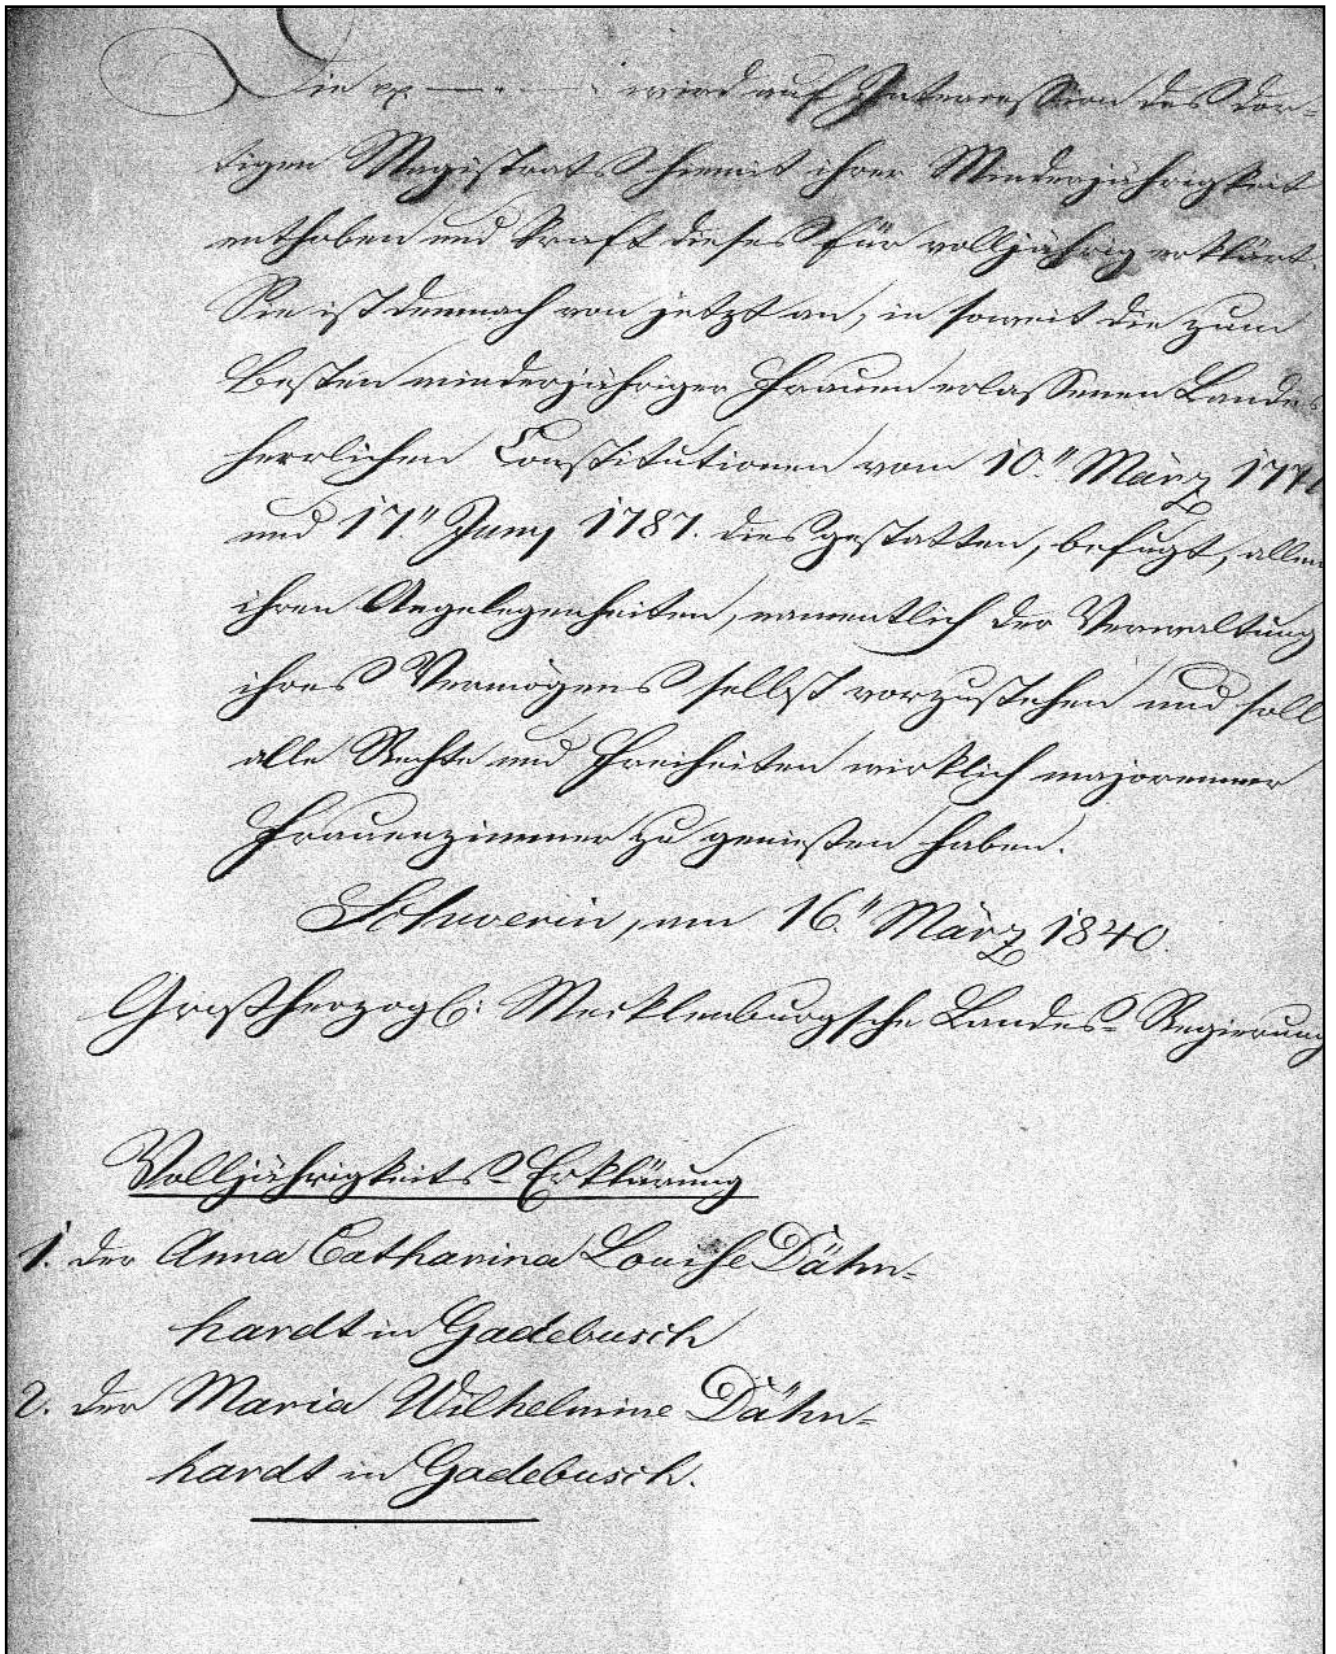 Die pp — . — . wird auf Intercession des dor-
tigen Magistrats hiemit ihrer Minderjährigkeit
enthoben und kraft dieses für volljährig erklärt.
Sie ist demnach von jetzt an, in soweit die zum
Besten minderjähriger Frauen erlassenen Landes
herrlichen Constitutionen vom 10." März 177
und 17." Juny 1787. dies gestatten, befugt, allen
ihren Angelegenheiten, namentlich der Verwaltung
ihres Vermögens selbst vorzustehen und soll
alle Rechte und Freiheiten wirklich majorenner
Frauenzimmer zu genießen haben.
Schwerin, am 16." März 1840.
Großherzogl: Mecklenburgsche Landes-Regierung
Volljährigkeits-Erklärung
1. der Anna Catharina Louise Dähn-
hardt in Gadebusch
2. der Maria Wilhelmine Dähn-
hardt in Gadebusch.